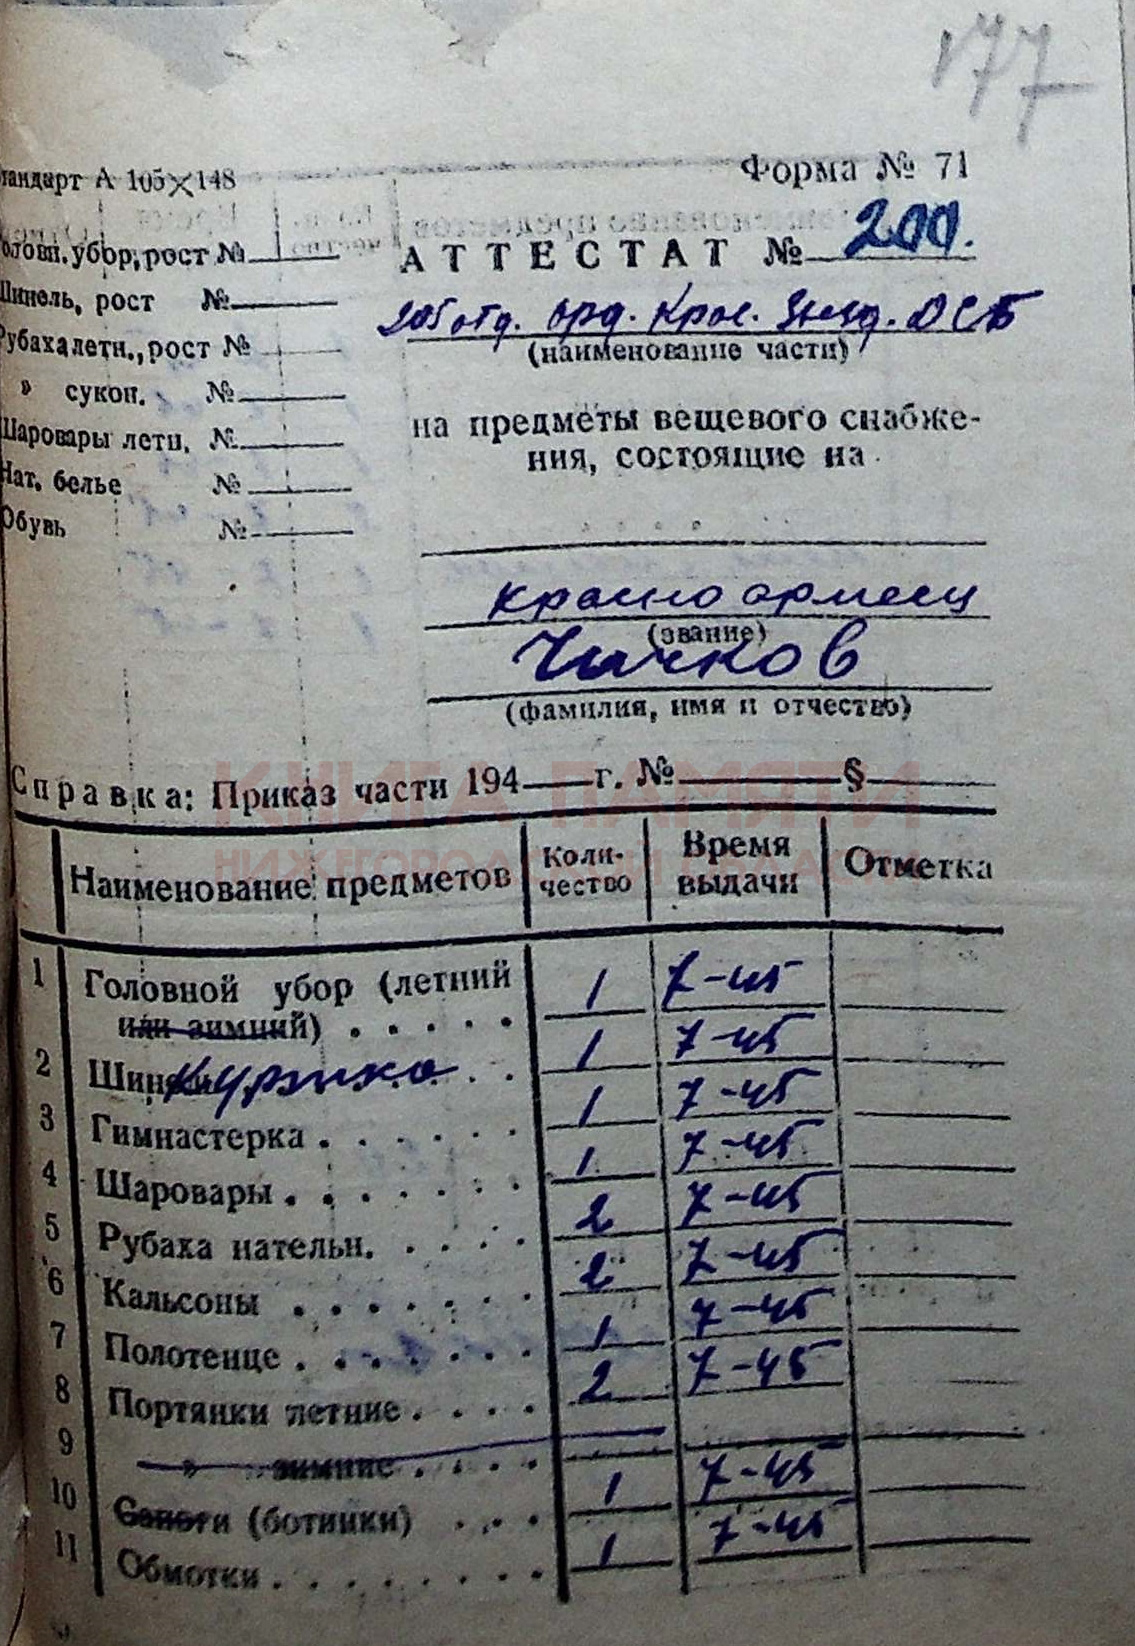 177
Стандарт А 105×148
Форма № 71
Головн. убор, рост №
Шинель, рост №
Рубаха летн., рост №
» сукон. №
Шаровары летн. №
Нат. белье №
Обувь №
АТТЕСТАТ № 200.
205 отд. орд. Крас. Звезд. ОСБ
(наименование части)
на предметы вещевого снабже-
ния, состоящие на
красноармеец
(звание)
Чичков
(фамилия, имя и отчество)
Справка: Приказ части 194 г. № §
КНИГА ПАМЯТИ
НИЖЕГОРОДСКОЙ ОБЛАСТИ
Наименование предметов Коли-чество Время выдачи Отметка
1 Головной убор (летний 1 7-45
или зимний) . . . . .
2 Шинель куртка 1 7-45
3 Гимнастерка . . . . . . 1 7-45
4 Шаровары . . . . . . . 1 7-45
5 Рубаха нательн. . . . . 2 7-45
6 Кальсоны . . . . . . . 2 7-45
7 Полотенце . . . . . . . 1 7-45
8 Портянки летние . . . . 2 7-45
9 » зимние . . . .
10 Сапоги (ботинки) . . . 1 7-45
11 Обмотки . . . . . . . . 1 7-45